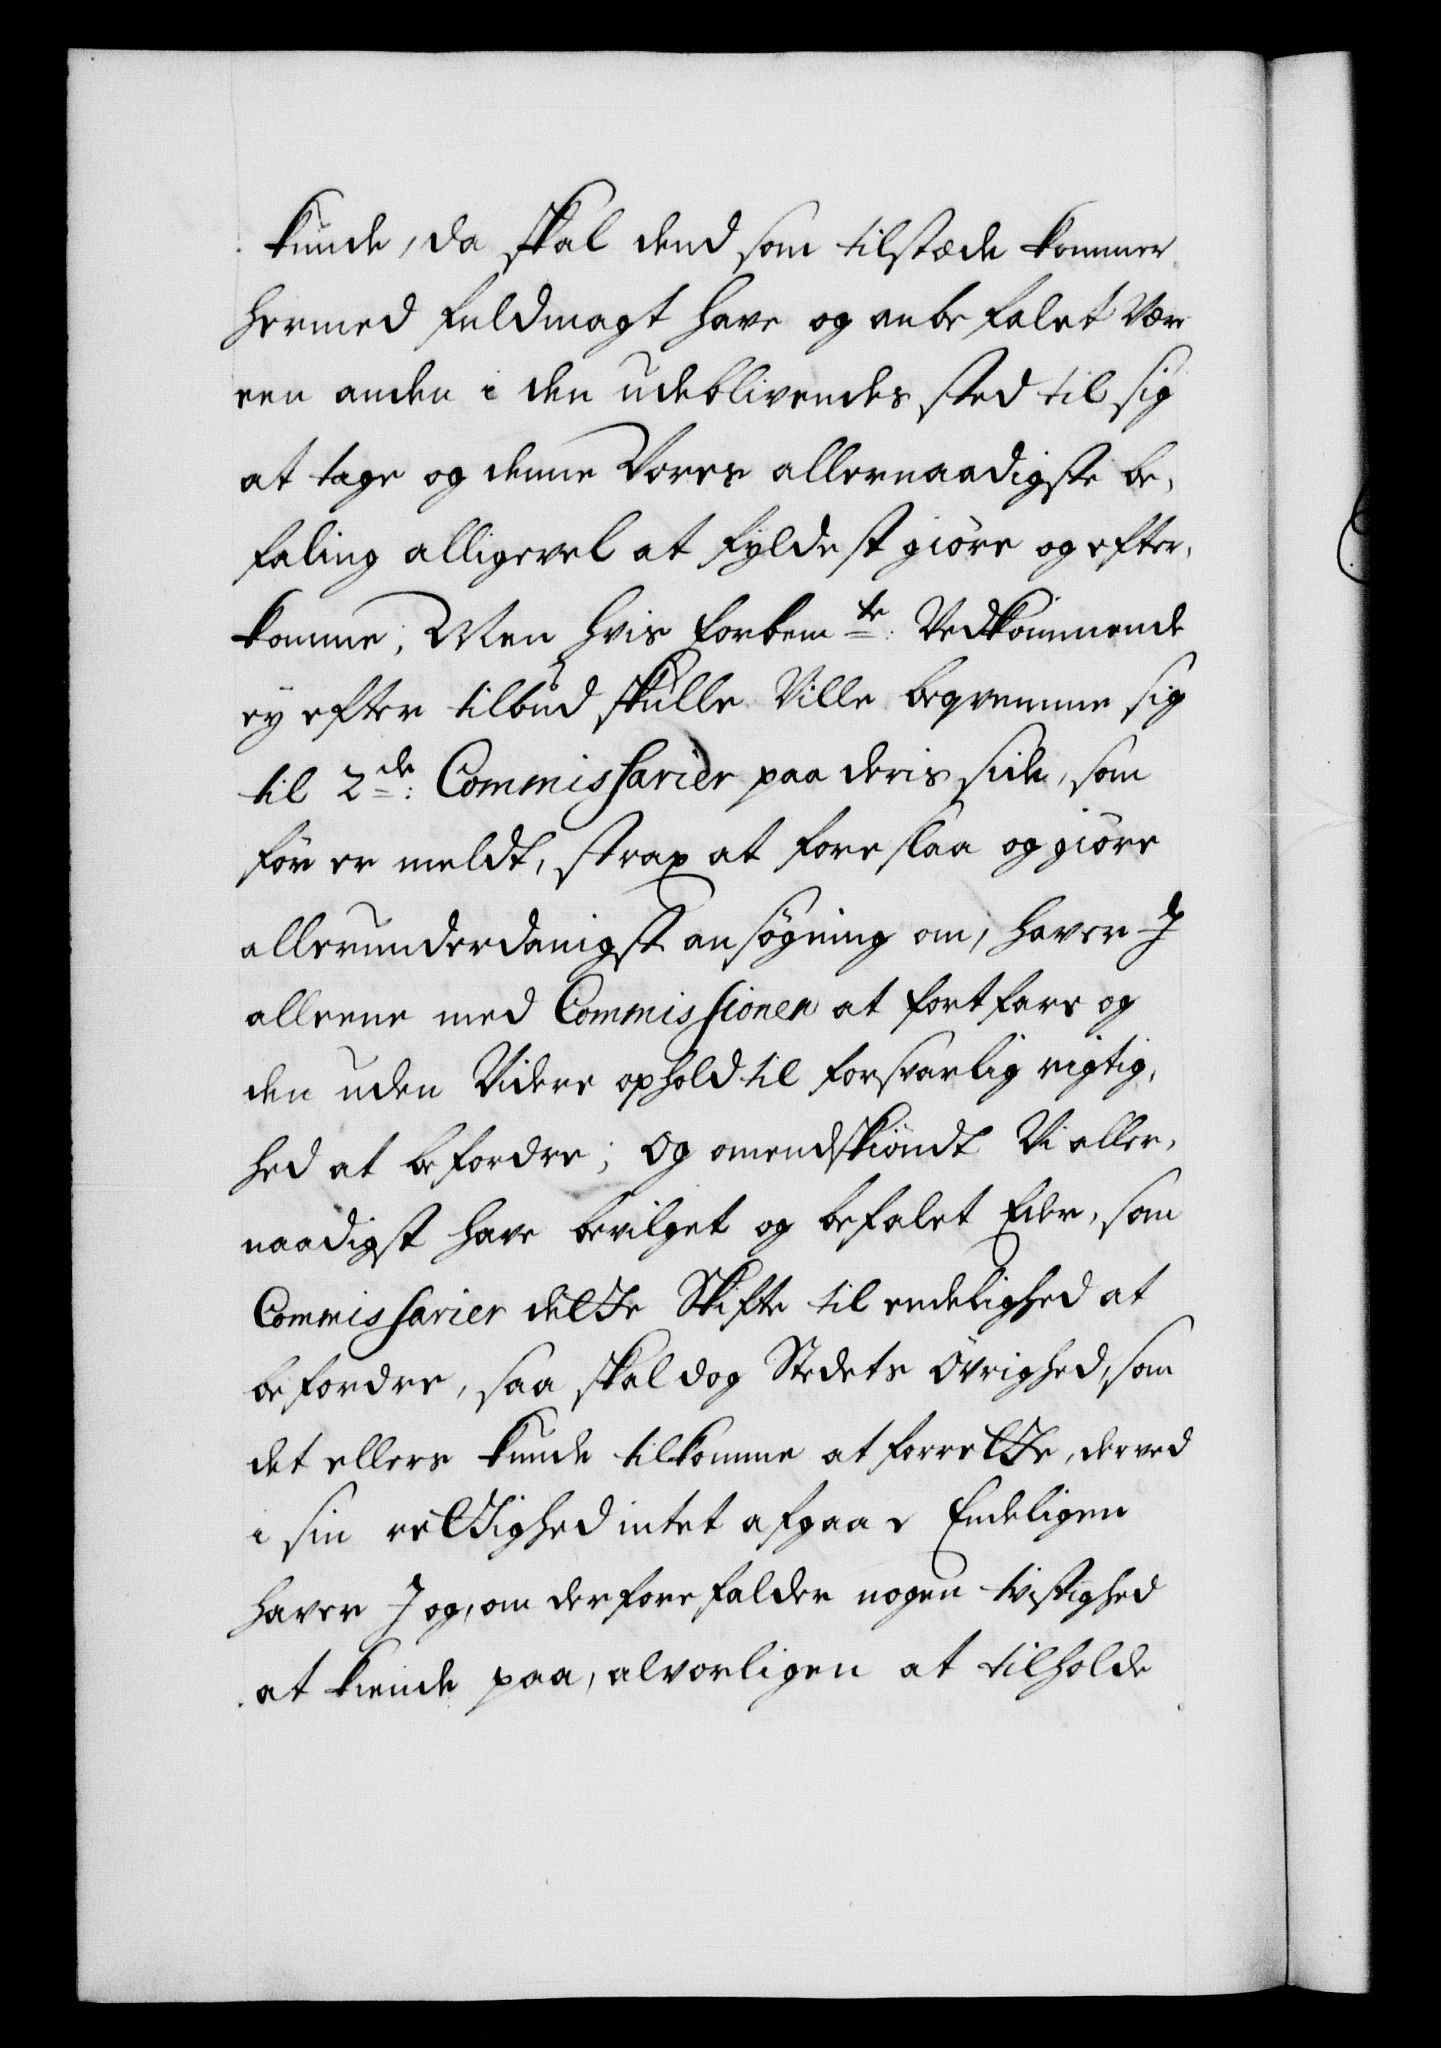 kunde, da skal dend som tilstæde kommer
hermed fuldmagt have og anbefalet Vær
een anden i den udeblivendes sted til sig
at tage og denne Vores allernaadigste be,
faling alligevel at fyldest giöre og efter,
komme; Men hvis forbem.te: Vedkommende
ey efter tilbud skulle Ville beqvemme sig
til 2de: Commissarier paa deris side, som
för er meldt, strax at foreslaa og giöre
allerunderdanigst ansögning om, haver J
alleene med Commissionen at fortfare og
den uden Videre ophold til forsvarlig rigtig,
hed at befordre; Og omendskiöndt Vi aller,
naadigst have bevilget og befalet Eder, som
Commissarier dette Skifte til endelighed at
befordre, saa skal dog Stedets Övrighed, som
det ellers kunde tilkomme at forrette, derved
i sin rettighed intet afgaae Endeligen
haver J og, om der forefalder nogen tvistighed
at kiende paa, alvorligen at tilholde